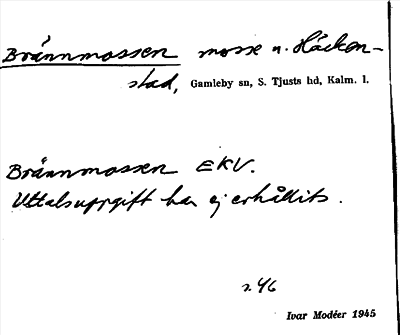 Brännmossen mosse n. Häcken-
stad, Gamleby sn, S. Tjusts hd, Kalm. l.
Brännmossen EKV.
Uttalsuppgift har ej erhållits.
s. 46
Ivar Modéer 1945